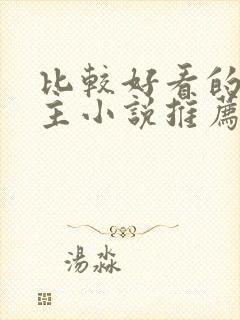 比較好看的
主小説推薦
湯淼